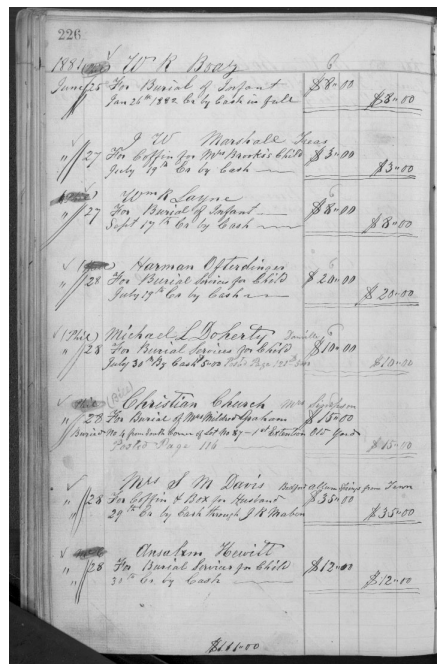 226
1881 W R Boaz 6
June 25 For Burial of Infant $8=00
Jan 26th 1882 Cr by Cash in full $8=00
J W Marshall Treas
" 27 For Coffin for Mrs Brooks Child $3=00
July 19th Cr by Cash $3=00
Wm R Layne 6
" 27 For Burial of Infant $8=00
Sept 17th Cr by Cash $8=00
Harman Ofterdinger 6
" 28 For Burial Services for Child $20=00
July 19th Cr by Cash $20=00
(Phil) Michael L Doherty Danville 6
" 28 For Burial Services for Child $10=00
July 30th By Cash 5=00 $10=00
(Bill) Christian Church Mrs
" 28 For Burial of Mrs Mildred Gorham $15=00
Buried No 4 from South Corner of Lot No 87 - 1st Extention Old Yard
Posted Page 116 $15=00
Mrs S M Davis Bedford Alum Springs from Town
" 28 For Coffin & Box for Husband $35=00
" 29th Cr by Cash through J R Maben $35=00
Anselm Hewitt
" 28 For Burial Services for Child $12=00
" 30th Cr by Cash $12=00
$111=00